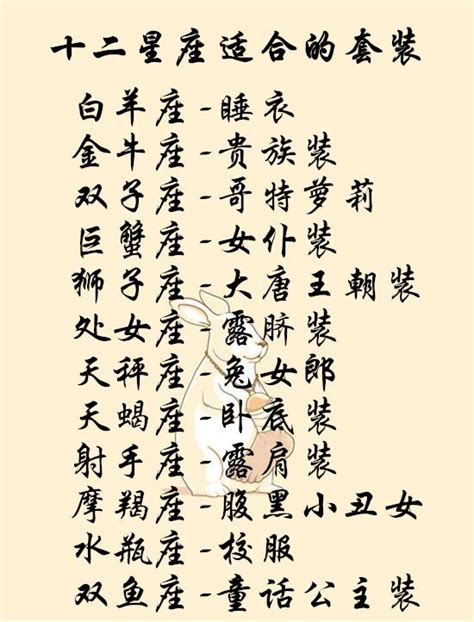 十二星座适合的套装
白羊座-睡衣
金牛座-贵族装
双子座-哥特萝莉
巨蟹座-女仆装
狮子座-大唐王朝装
处女座-露脐装
天秤座-兔女郎
天蝎座-卧底装
射手座-露肩装
摩羯座-腹黑小丑女
水瓶座-校服
双鱼座-童话公主装